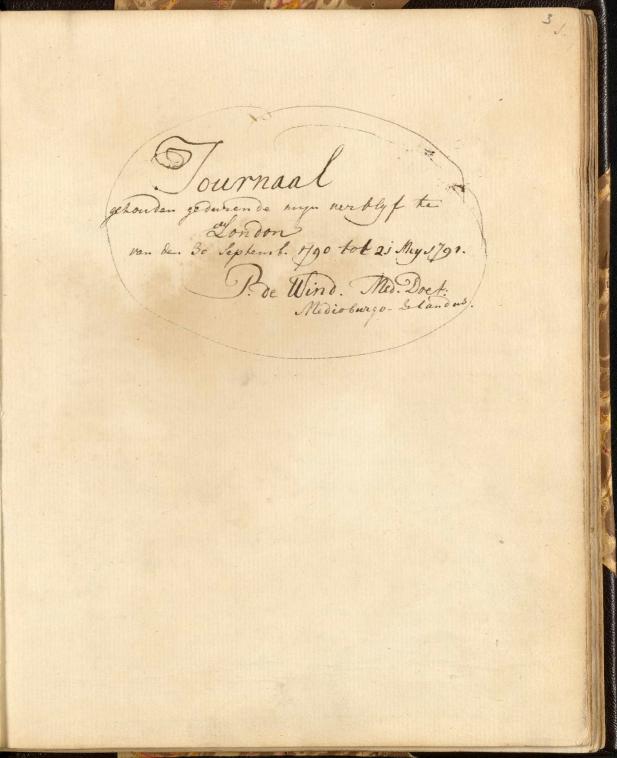 3
Journaal
gehouden gedurende myn verblyf te
London
van den 30 Septemb. 1790 tot 21 Mey 1791.
P. de Wind. Med. Doct.
Medioburgo-Zelandus.